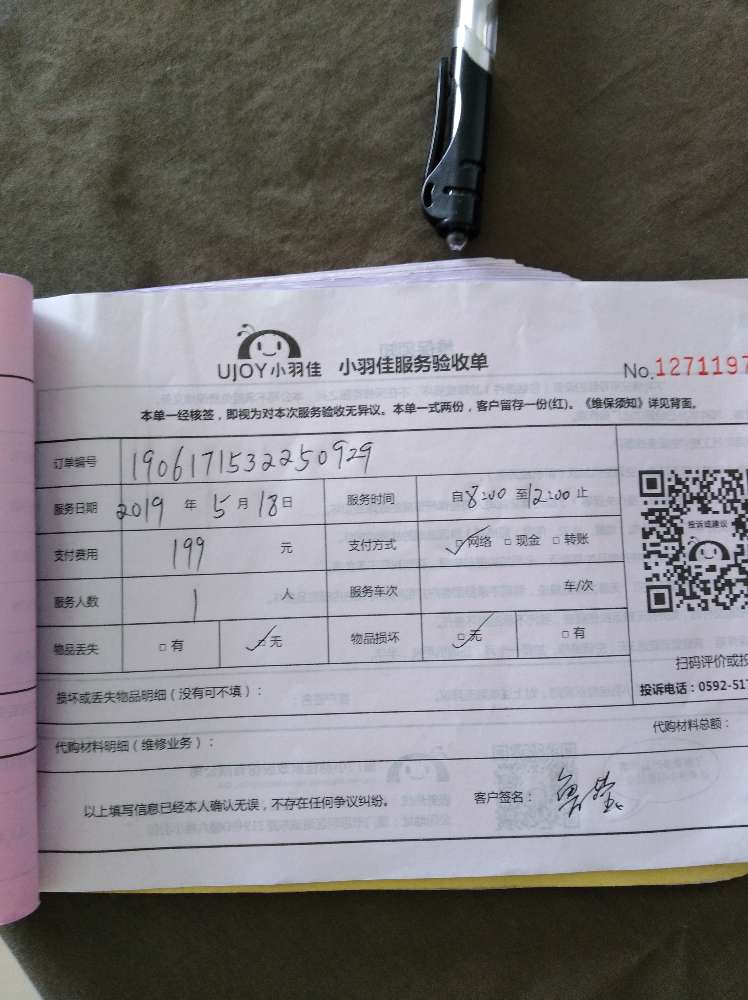 UJOY小羽佳 小羽佳服务验收单
No.1271197
本单一经核签，即视为对本次服务验收无异议。本单一式两份，客户留存一份(红)。《维保须知》详见背面。
订单编号 1906171532250929
服务日期 2019 年 5 月 18 日 服务时间 自 8:00 至 12:00 止
支付费用 199 元 支付方式 ☑网络 □现金 □转账
服务人数 1 人 服务车次 车/次
物品丢失 □有 ☑无 物品损坏 ☑无 □有
投诉或建议
扫码评价或投
投诉电话：0592-517
损坏或丢失物品明细（没有可不填）：
代购材料明细（维修业务）： 代购材料总额：
以上填写信息已经本人确认无误，不存在任何争议纠纷。 客户签名：